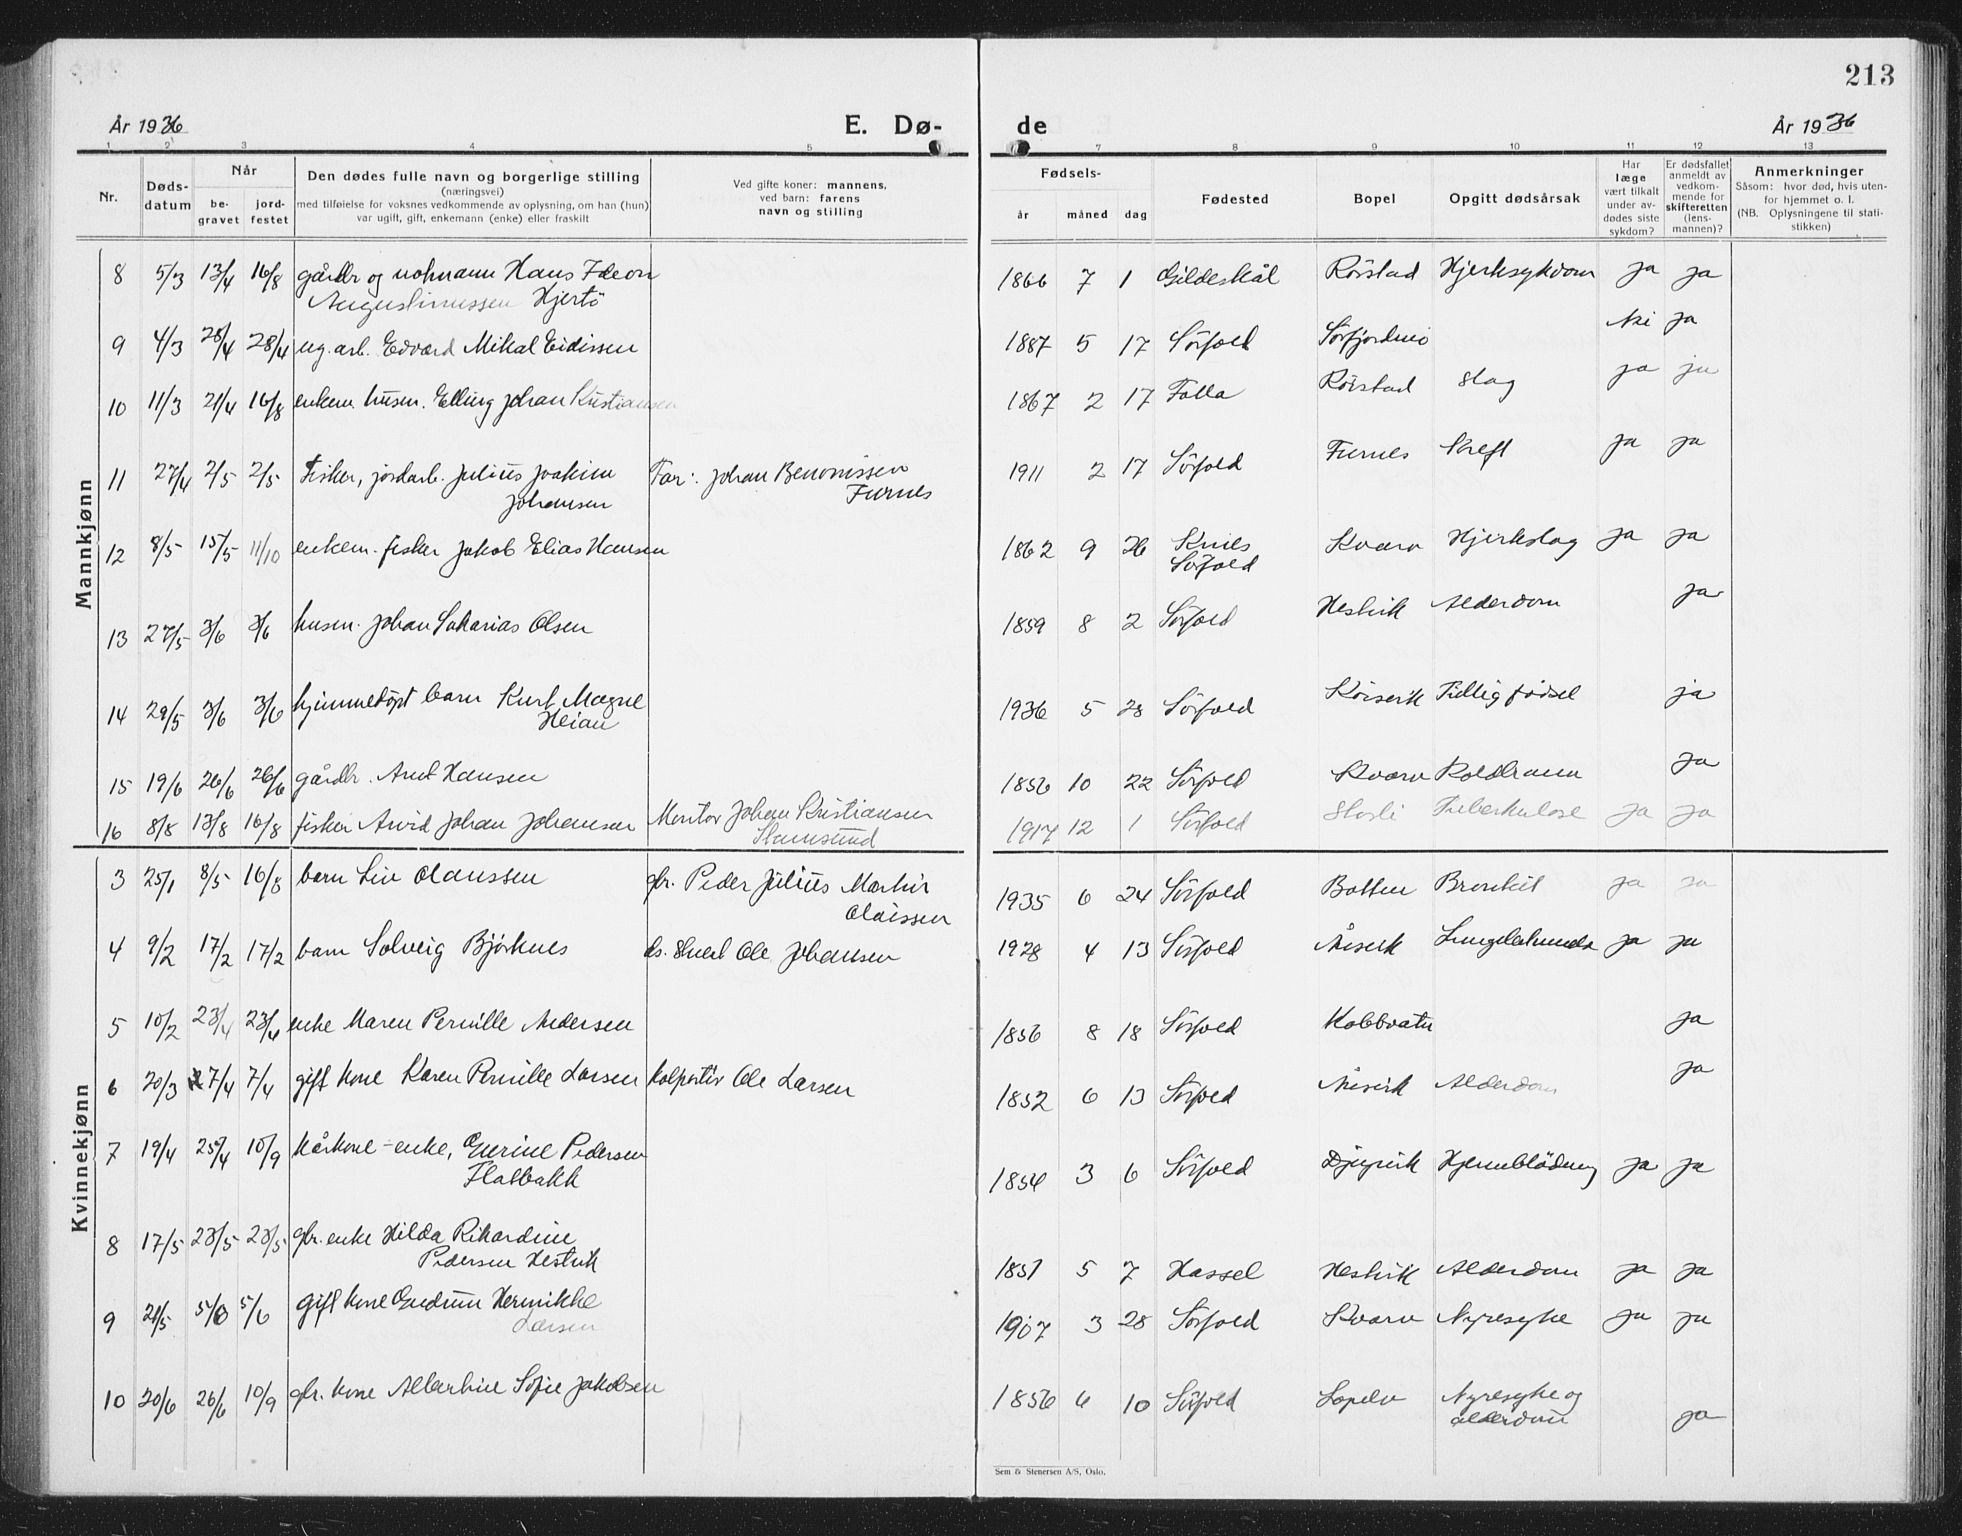 213
År 1936 E. Dø- de År 1936
1 2 3 4 5 7 8 9 10 11 12 13
Nr. Døds-datum Når be-gravet jord-festet
Den dødes fulle navn og borgerlige stilling
(næringsvei)
med tilføielse for voksnes vedkommende av oplysning, om han (hun)
var ugift, gift, enkemann (enke) eller fraskilt
Ved gifte koner: mannens,
ved barn: farens
navn og stilling
Fødsels- år måned dag
Fødested
Bopel
Opgitt dødsårsak
Har læge vært tilkalt under av-dødes siste sykdom?
Er dødsfallet anmeldt av vedkom-mende for skifteretten (lens-mannen)?
Anmerkninger
Såsom: hvor død, hvis uten-
for hjemmet o. l.
(NB. Oplysningene til stati-
stikken)
Mannkjønn
8 5/3 13/4 16/8 gårdbr og Hans 1866 7 1 Gildeskål Rörstad Hjertesykdom ja ja
Augustinussen Hjertö
9 4/3 28/4 28/4 ug. arb. Edvard Mikal Eidissen 1887 5 17 Sörfold Nei ja
10 11/3 21/4 16/8 enkem. husm. Elling Johan Kristiansen 1867 2 17 Folla Rörstad Slag ja ja
11 27/4 2/5 2/5 Fisker, jordarb. Julius Joakim Far: Johan Benonissen 1911 2 17 Sörfold Furnes Kreft ja ja
Johansen Furnes
12 8/5 15/5 11/10 enkem. fisker Jakob Elias Hansen 1862 9 26 Kines Kvarv Hjerteslag ja ja
Sörfold
13 27/5 3/6 3/6 husm. Johan Sakarias Olsen 1859 8 2 Sörfold Hestvik Alderdom ja
14 29/5 3/6 3/6 hjemmedöpt barn Kurt Magne 1936 5 28 Sörfold Tidlig födsel ja
Heian
15 19/6 26/6 26/6 gårdbr. Arnt Hansen 1856 10 22 Sörfold Kvarv Koldbrann ja
16 8/8 13/8 16/8 fisker Arvid Johan Johansen Montör Johan Kristiansen 1917 12 1 Sörfold Tuberkulose ja ja
Stamsund
Kvinnekjønn
3 25/1 8/5 16/8 barn Liv Olaussen gbr. Peder Julius Martin 1935 6 24 Sörfold Botten Bronkit ja ja
Olaissen
4 9/2 17/2 17/2 barn Solveig Bjørknes Ole Johansen 1928 4 13 Sörfold ja ja
5 10/2 23/4 23/4 enke Maren Pernille Andersen 1856 8 18 Sörfold Kobbvatn ja
6 20/3 7/4 7/4 gift kone Karen Pernille Larsen Kolportör Ole Larsen 1852 6 13 Sörfold Alderdom ja
7 19/4 25/4 10/9 kårkone - enke, Gurine Pedersen 1854 3 6 Sörfold Djupvik Hjerneblödning ja ja
Flatbakk
8 17/5 23/5 23/5 gbr. enke Hilda Rikardine 1851 5 7 Hassel Hestvik Alderdom ja ja
Pedersen Hestvik
9 21/5 5/6 5/6 gift kone Gudrun Henrikke 1907 3 28 Sörfold Kvarv Nyresyke ja ja
Larsen
10 20/6 26/6 10/9 gbr. kone Albertine Sofie Jakobsen 1856 6 10 Sörfold Nyresyke og
alderdom ja
Sem & Stenersen A/S, Oslo.